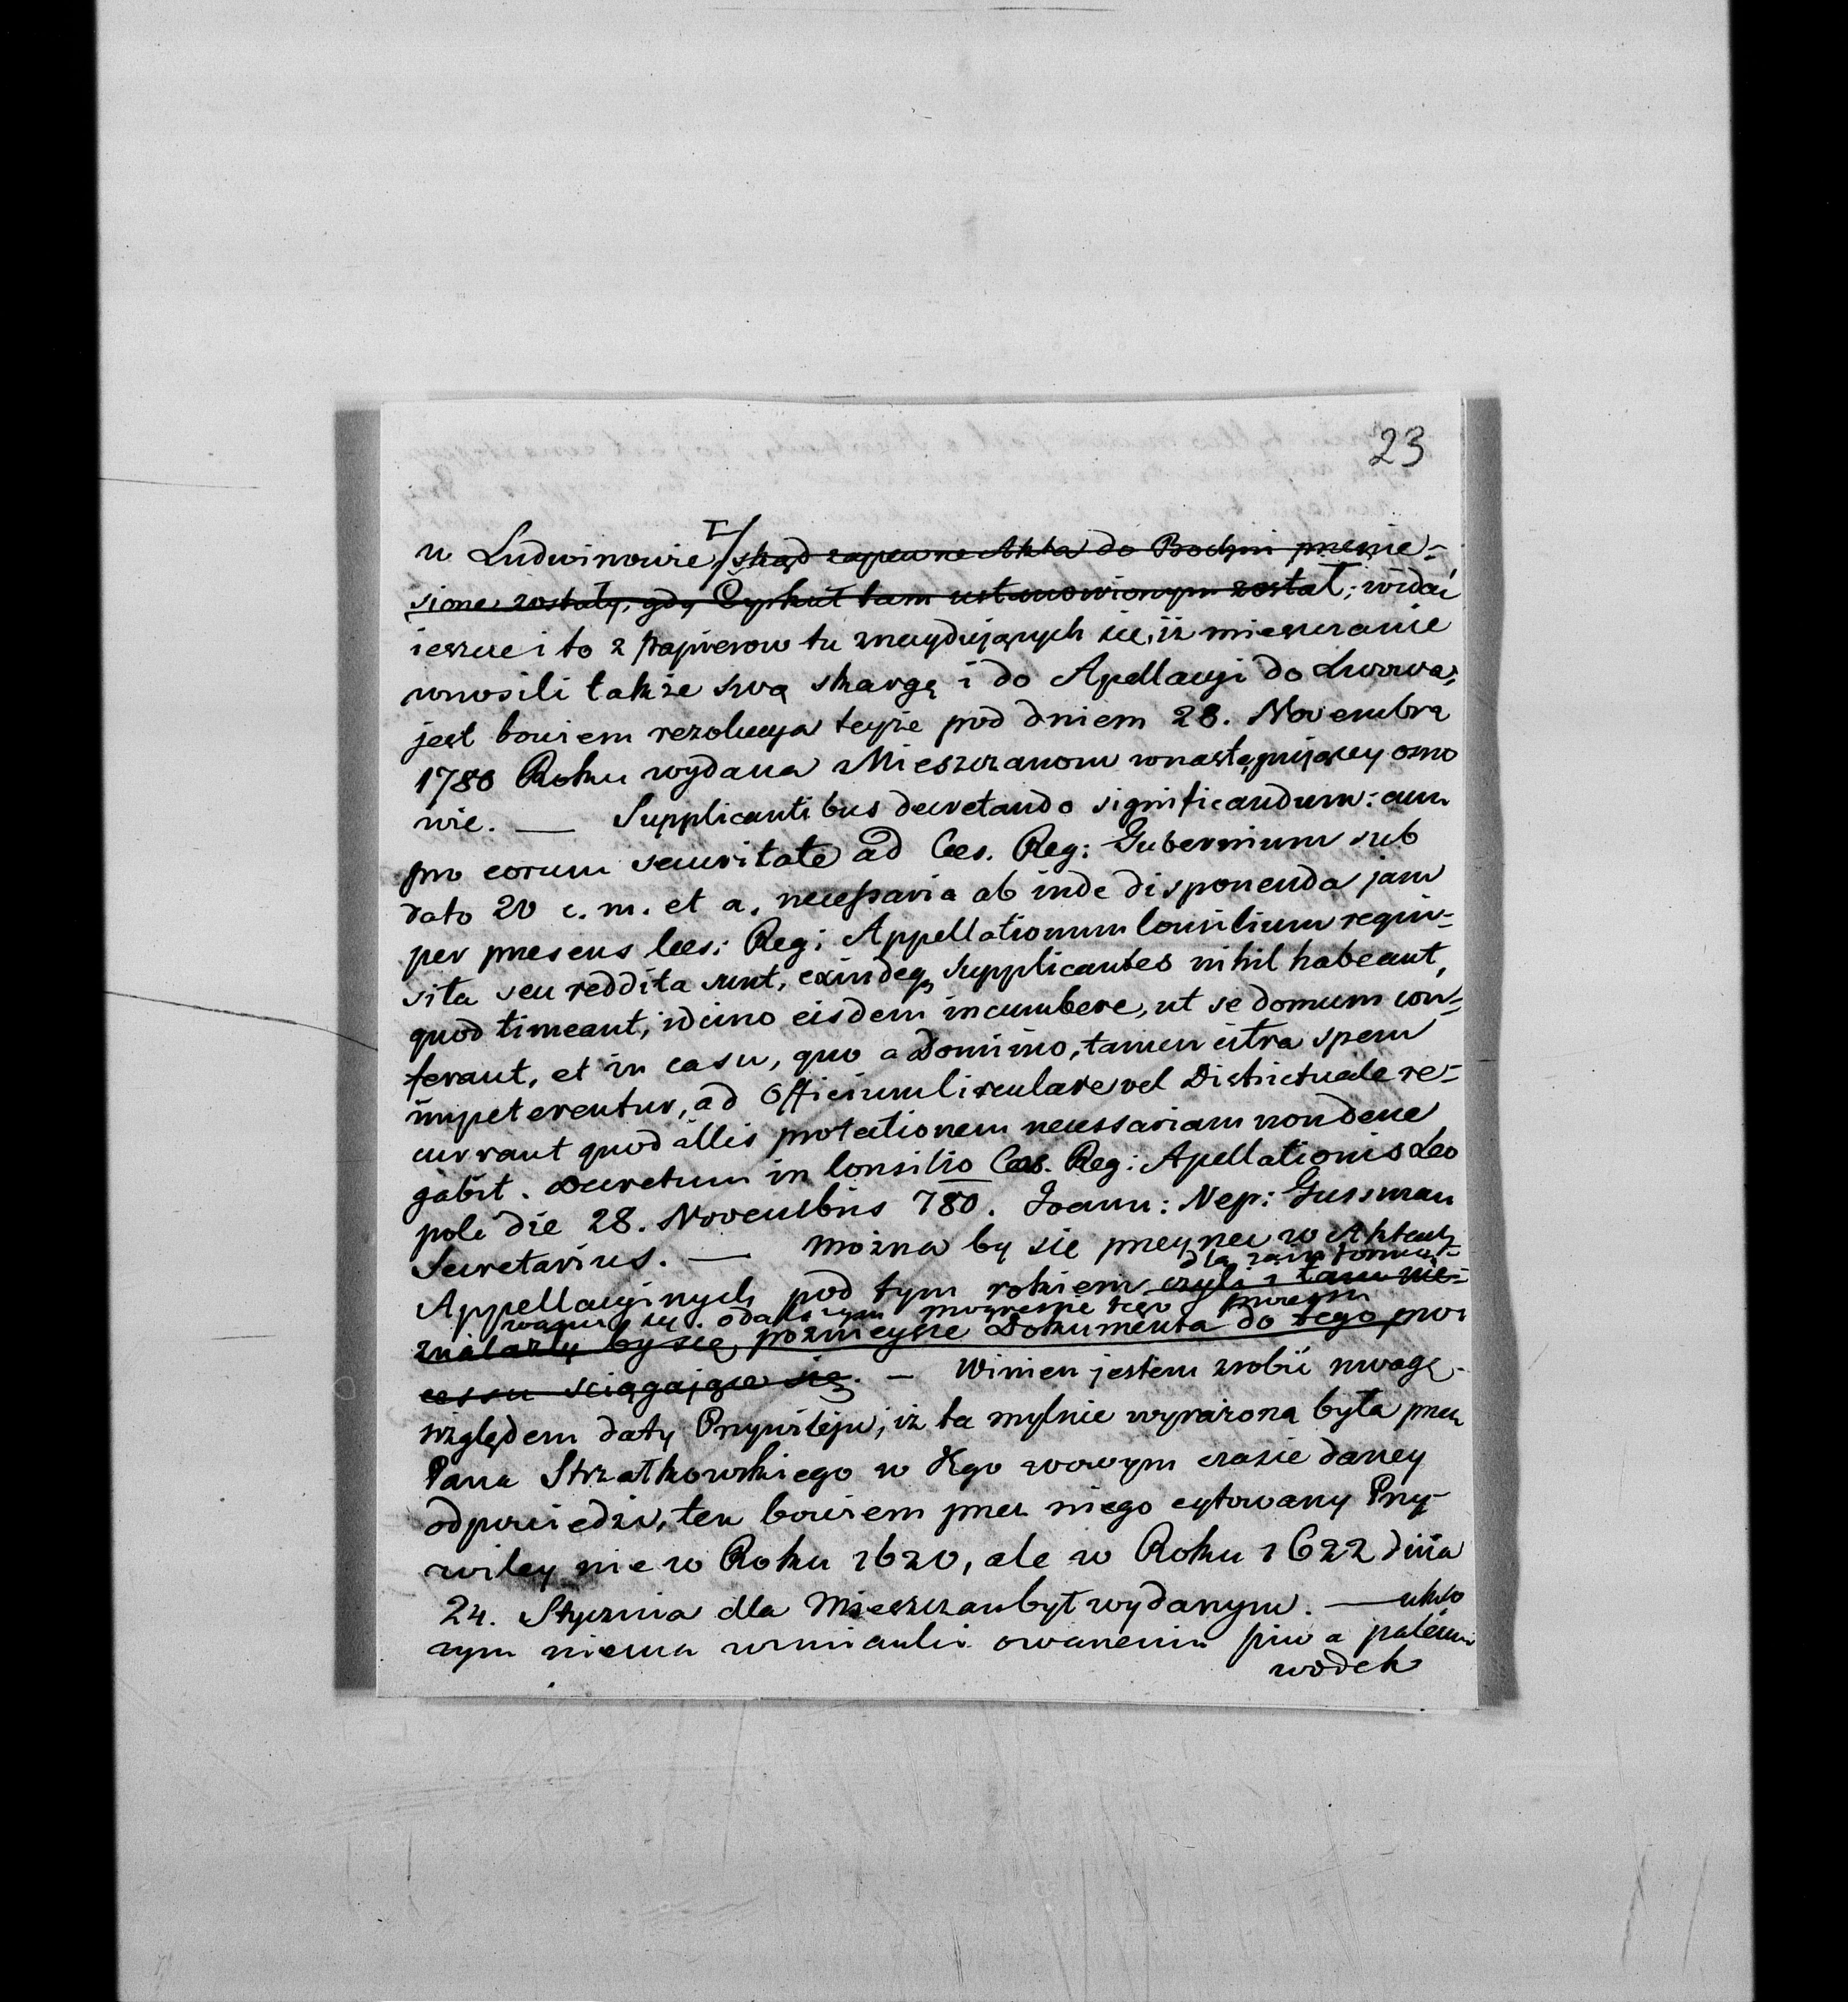 23
w Ludwinowie I/ skąd zapewne Akta do Bochni przenie-
sione zostały, gdy Cyrkuł tam ustanowionym został; widać
ieszcze i to z papierow tu znaydujących się, iż mieszczanie
wnosili także swą skargę i do Apellacyi do Lwowa;
jest bowiem rezolucya teyże pod dniem 28. Novembra
1780 Roku wydana Mieszczanom wnastępuiącey osno
wie. — Supplicantibus decretando significandum: cum
pro eorum securitate ad Ces. Reg: Gubernium sub
dato 20 c. m. et a. necessaria ab inde disponenda jam
per praesens Ces: Reg: Appellationum Consilium requi-
sita seu reddita sunt, exindeq supplicantes nihil habeant,
quod timeant, idcirco eisdem incumbere, ut se domum con-
ferant, et in casu, quo a Domino, tamen citra spem
impeterentur, ad Officium Circulare vel Districtuale re-
currant quod illis protectionem necessariam non dene
gabit. Decretum in Consilio Caes. Reg: Apellationis Leo
poli die 28. Novembris 780. Joann: Nep: Gussman
Secretarius. — Można by się preyrzec w Aktach
dla zainformo-
Appellacyinych pod tym rokiem czyli i tam nie-
wania się o dalszym progressie tego processu
znalazły by się poznieysze Dokumenta do tego pro
cessu sciągaiące się. — Winien jestem zrobić uwagę
względem daty Przywileju, iż ta mylnie wyrażona była przez
Pana Strzałkowskiego w Jego wowym czasie daney
odpowiedzi, ten bowiem przez niego cytowany Przy-
wiley nie w Roku 1620, ale w Roku 1622 dnia
24. Stycznia dla Mieszczan był wydanym. — w któ
rym niema wzmianki o warzeniu piwa paleniu
wodek